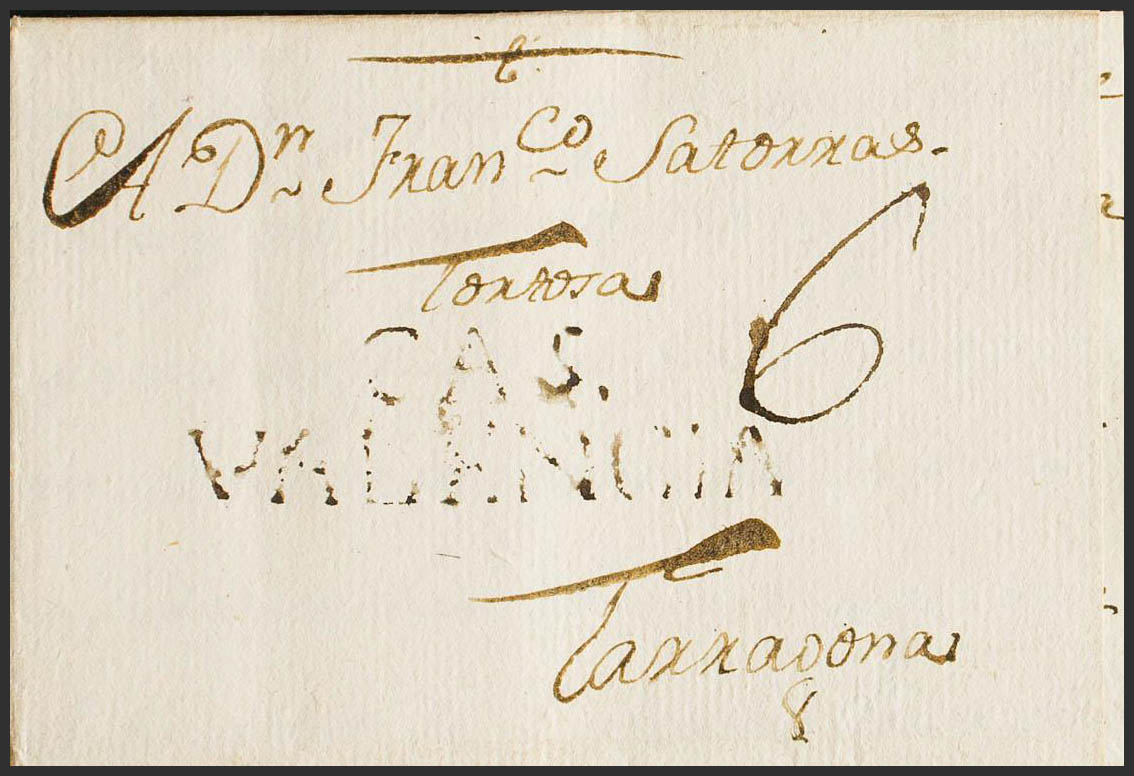 A Dn. Franco. Saterras.
Tortosa
6
CAS.
VALENCIA
Tarragona